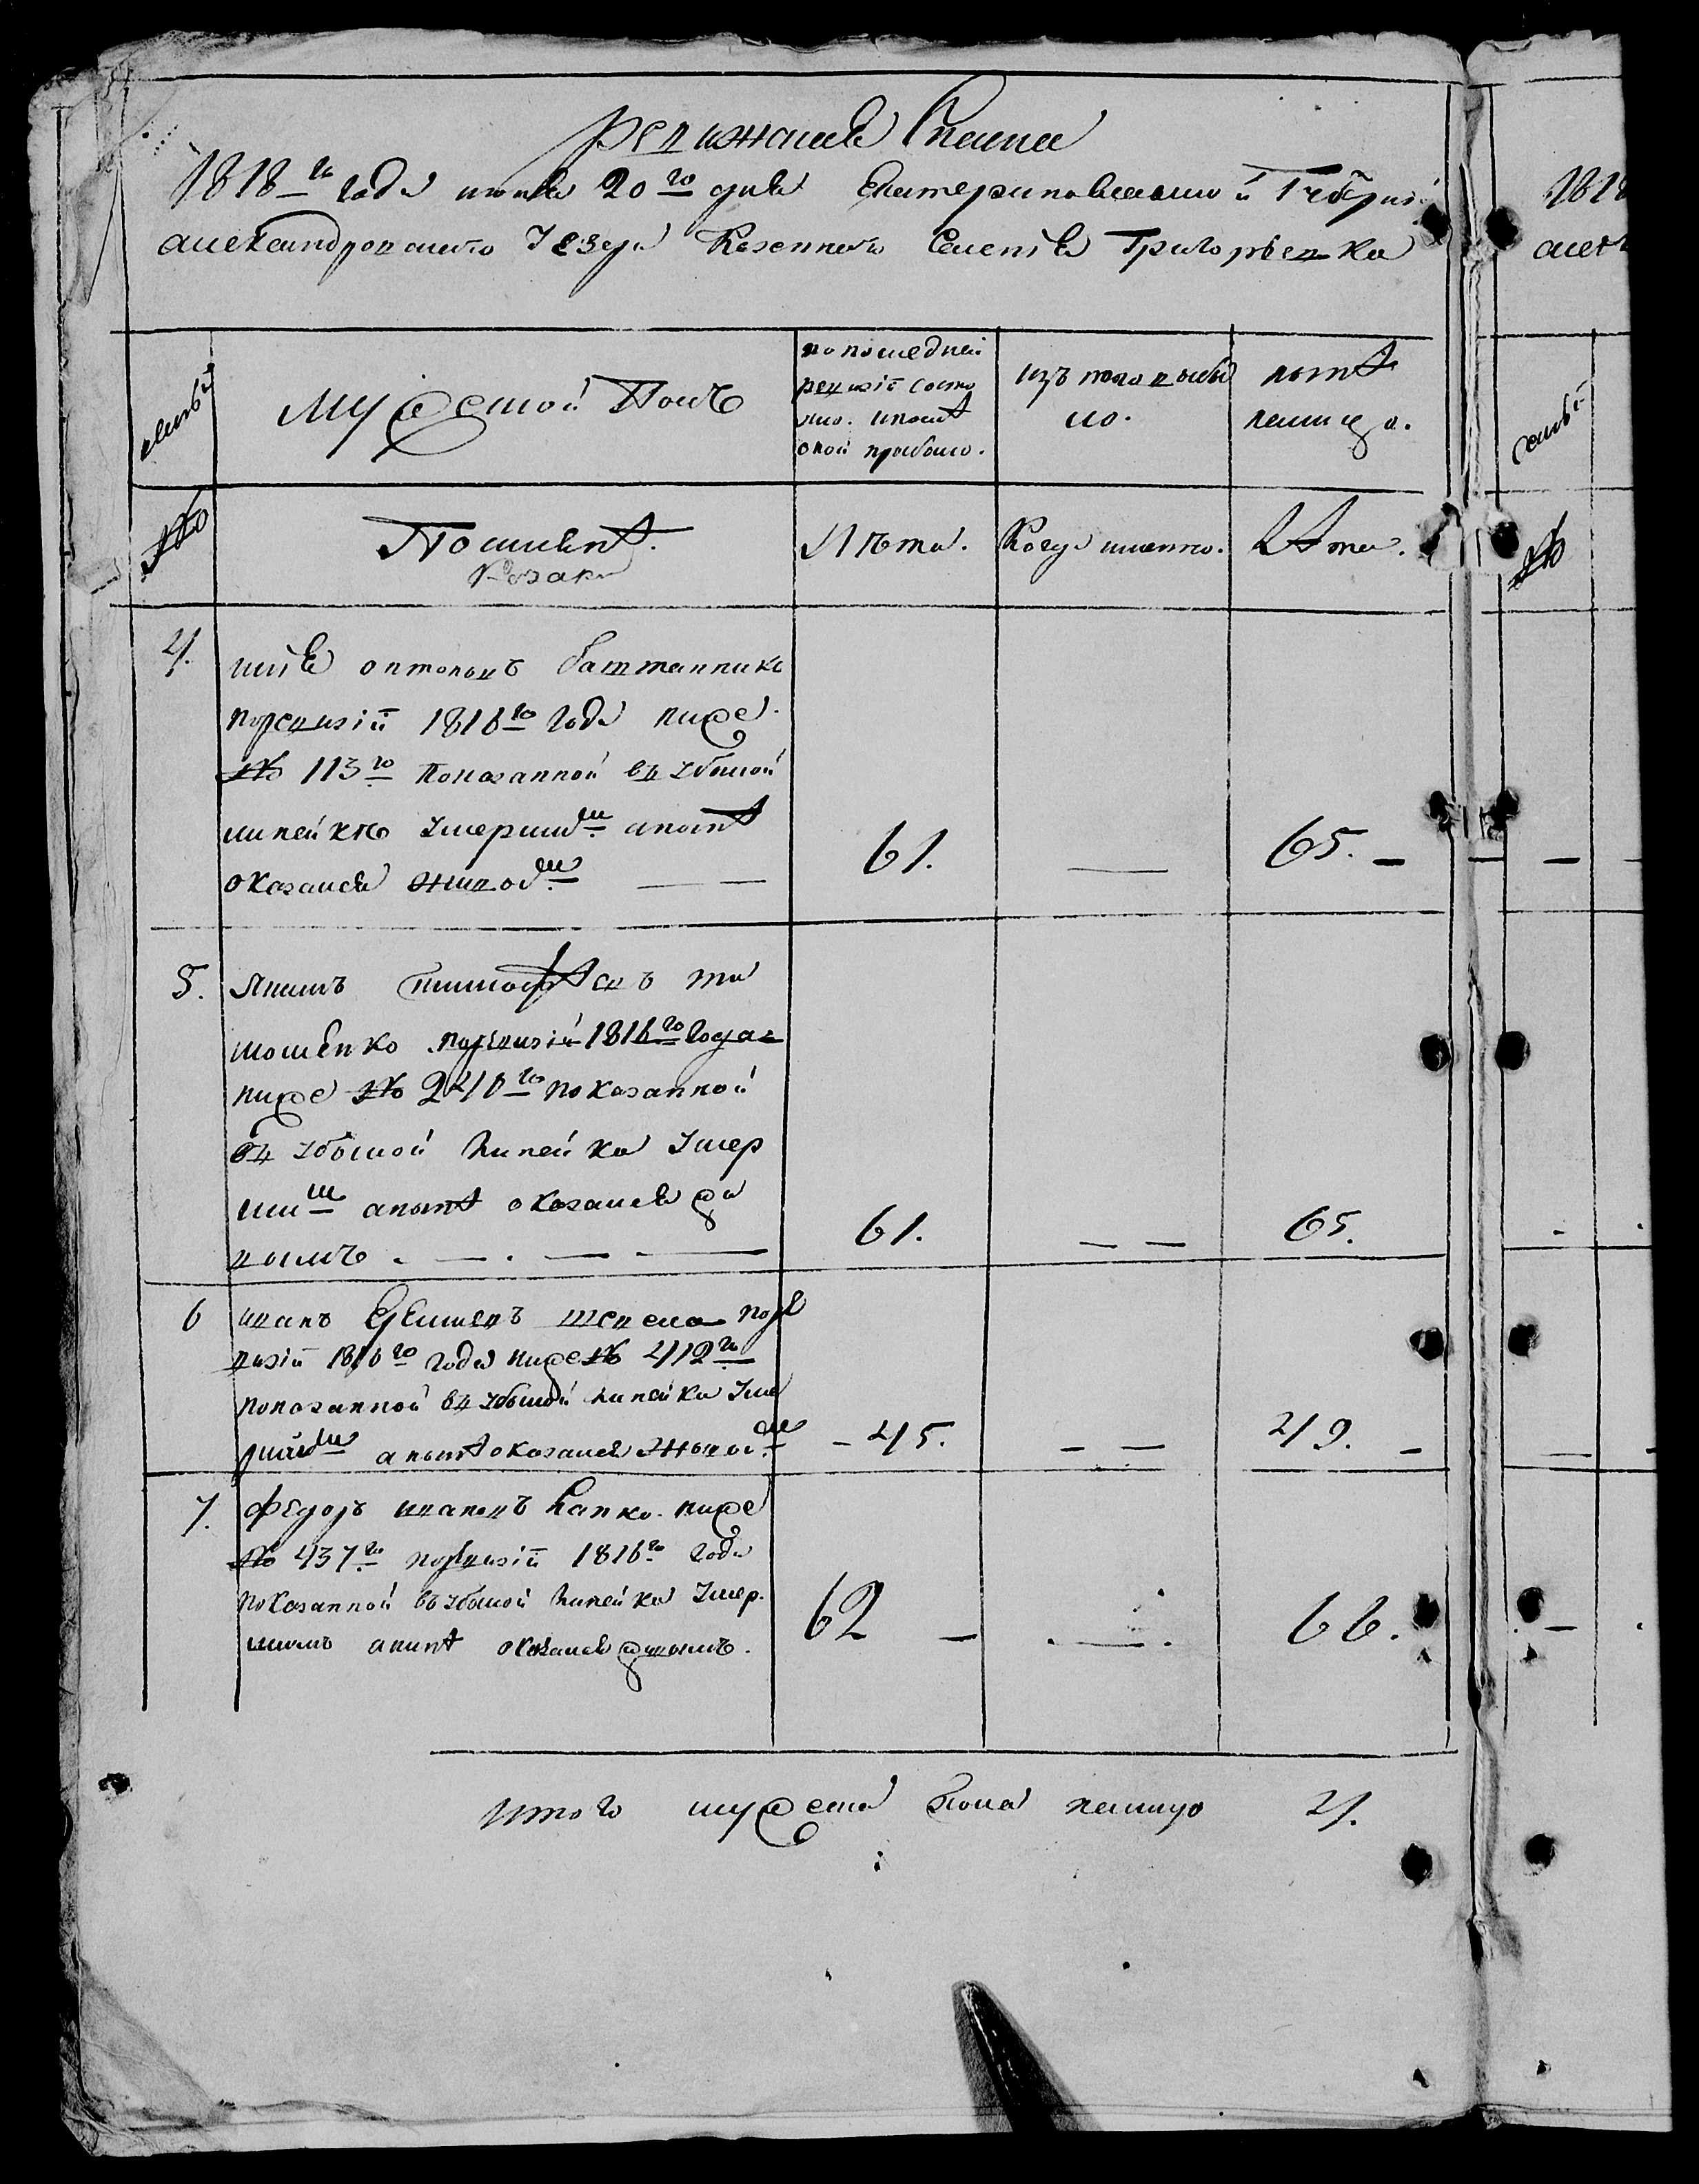 Ревижская Скаска
1818го года июня 20го дня Екатериновславской Губернiи
александровского Уезда Казенного Селенiя Григорьевка
семьи
Мужеской Полъ
по последней
ревизiи состо
яло. и после
оной прибыло.
изъ того выбы
ло.
ныне
налицо.
№
Поселяне.
Козаки
Лѣта.
Когда именно.
Лѣта.
4.
илья антоновъ баштанникъ
поревизiи 1816го года ниже
№ 113го показанной въ убылой
линейкѣ умершимъ аныне
оказался живымъ
61.
65.
5.
якимъ тимофѣевъ ти
мошенко поревизiи 1816го года
ниже № 240го показанной
въ убылой линейки умер
шимъ аныне оказался жи
вымъ
61.
65.
6
иванъ ефимовъ шевель поре
визiи 1816го года ниже № 412го
показанной въ убылой линейки уме
ршимъ аныне оказался живымъ
45.
49.
7.
федоръ ивановъ Ганко ниже
№ 437го поревизiи 1816го года
показанной въ убылой линейки умер
шимъ аныне оказался живымъ.
62
66.
Итого мужеска пола налицо 4.
1818
алек
семьи
№